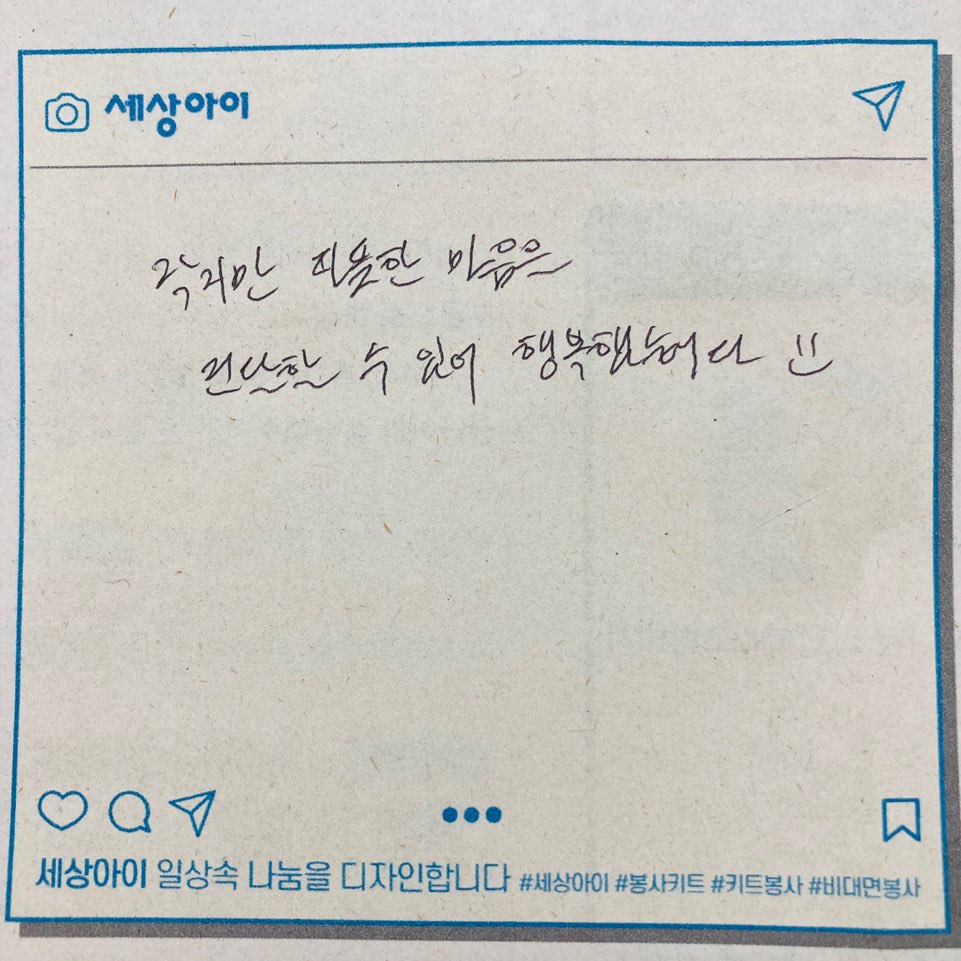 세상아이
작지만 따뜻한 마음을
전달할 수 있어 행복했습니다
세상아이 일상속 나눔을 디자인합니다 #세상아이 #봉사키트 #키트봉사 #비대면봉사